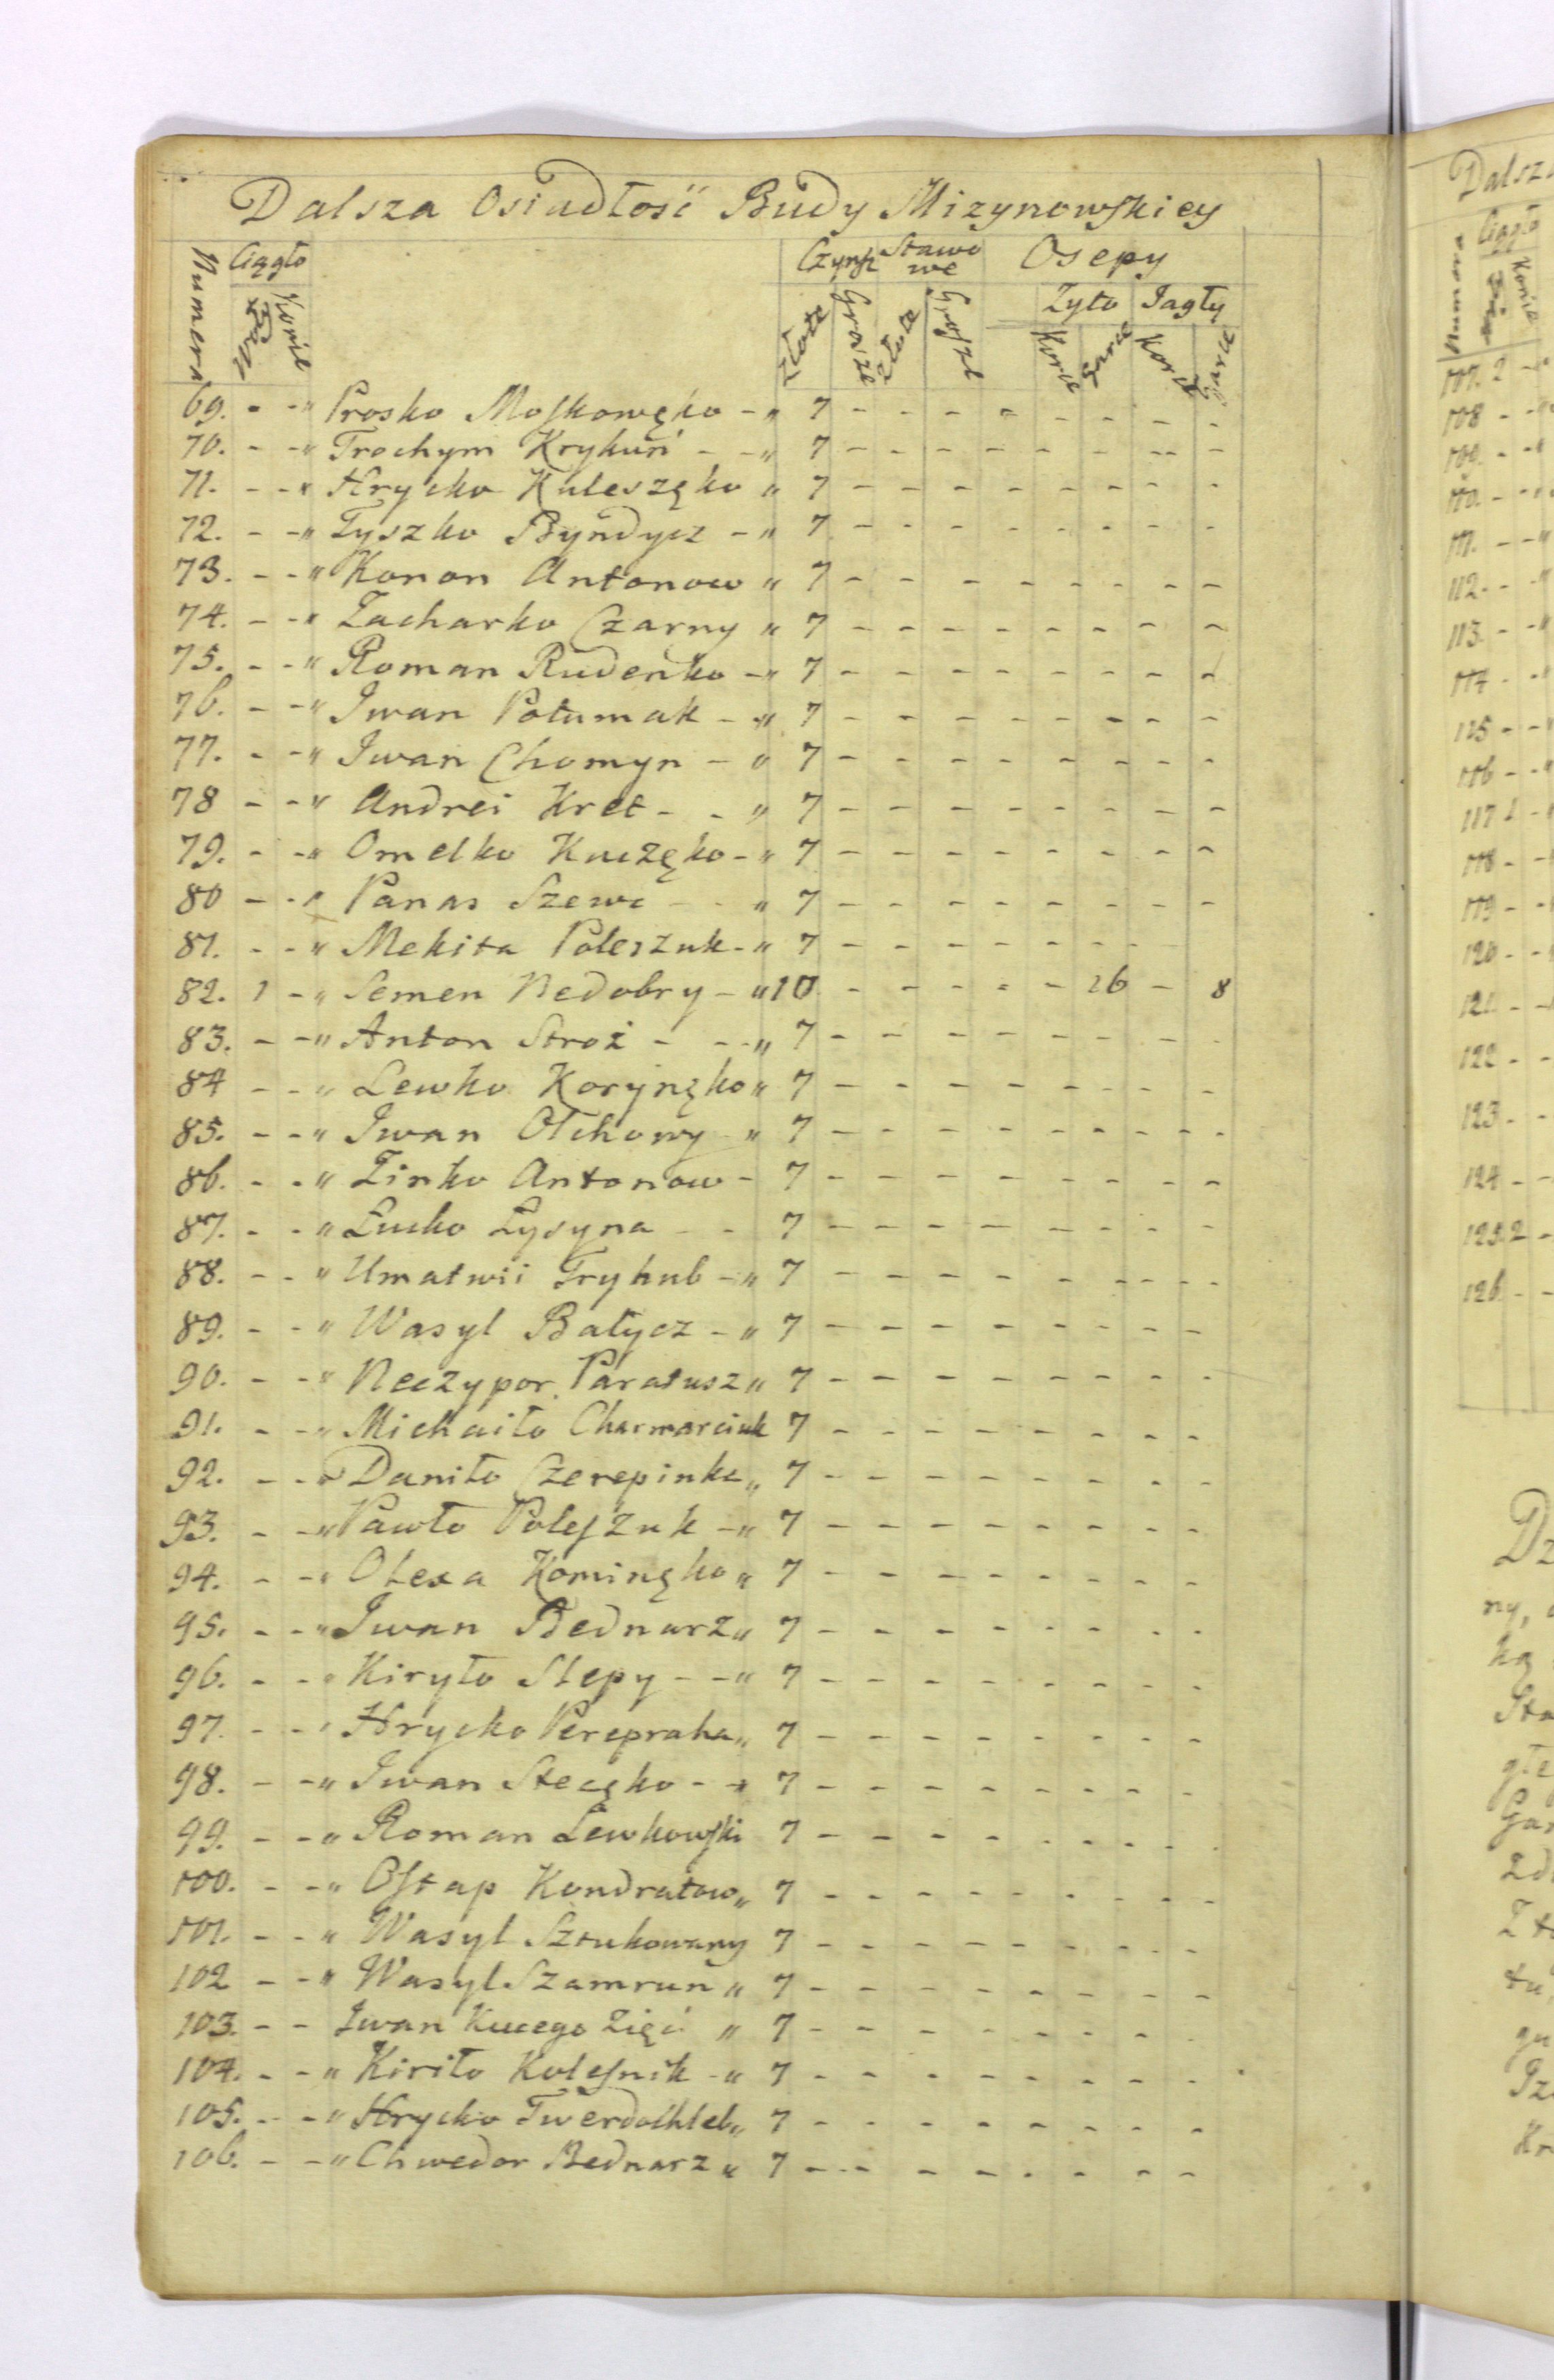 Dalsza Osiadłość Budy Mizynowskiey
Numera Ciągło Konie Czynsz Stawowe Osepy
Złote Grosze Złote Grosze Żyto Jagły
Korce Garce Korce Garce
69. - - " Prosko Moskowęko - " 7 - - - - - - - -
70. - - " Trochym Krykuń - - " 7 - - - - - - - -
71. - - " Hrycko Kuleszęko " 7 - - - - - - - -
72. - - " Tyszko Byndycz - " 7 - - - - - - - -
73. - - " Konon Antonow " 7 - - - - - - - -
74. - - " Zacharko Czarny " 7 - - - - - - - -
75. - - " Roman Rudenko - " 7 - - - - - - - -
76. - - " Iwan Potumak - " 7 - - - - - - - -
77. - - " Iwan Chomyn - " 7 - - - - - - - -
78 - - " Andrei Kret - - " 7 - - - - - - - -
79. - - " Omelko Kuczęko - " 7 - - - - - - - -
80 - - " Panas Szewc - - " 7 - - - - - - - -
81. - - " Mekita Poleszuk - " 7 - - - - - - -
82. 1 - " Semen Nedobry - " 10 - - - - - 26 - 8
83. - - " Anton Stroż - - " 7 - - - - - - - -
84 - - " Lewko Korynęko " 7 - - - - - - - -
85. - - " Iwan Olchowy " 7 - - - - - - - -
86. - - " Zinko Antonow - 7 - - - - - - - -
87. - - " Łucko Łysyna - - 7 - - - - - - - -
88. - - " Umatwii Tryhub - " 7 - - - - - - - -
89. - - " Wasyl Bałycz - " 7 - - - - - - - -
90. - - " Neczypor Paratusz " 7 - - - - - - - -
91. - - " Michaiło Charmarciuk 7 - - - - - - - -
92. - - " Daniło Czerepinka " 7 - - - - - - - -
93. - - " Pawło Poleszuk - " 7 - - - - - - - -
94. - - " Olexa Kominęko " 7 - - - - - - - -
95. - - " Iwan Bednarz " 7 - - - - - - - -
96. - - " Kiryło Slepy - - " 7 - - - - - - - -
97. - - " Hrycko Perepraha " 7 - - - - - - - -
98. - - " Iwan Stecęko - " 7 - - - - - - - -
99. - - " Roman Lewkowski 7 - - - - - - - -
100. - - " Ostap Kondratow " 7 - - - - - - - -
101. - - " Wasyl Sztukowany 7 - - - - - - - -
102 - - " Wasyl Szamrun " 7 - - - - - - - -
103. - - Iwan Kucego Zięć " 7 - - - - - - - -
104. - - " Kiriło Kolesnik - " 7 - - - - - - - -
105. - - " Hrycko Twerdochleb " 7 - - - - - - - -
106. - - " Chwedor Bednarz " 7 - - - - - - - -
Dalsza
Ciągło
Konie
107. 2 -
108 - - "
109. - - "
110. - - "
111. - - "
112. - - "
113. - - "
114 - - "
115 - - "
116 - - "
117 1 - "
118 - -
119 - -
120 - -
121. - -
122 - -
123 - -
124 - -
125. 2 -
126 - -
ny,